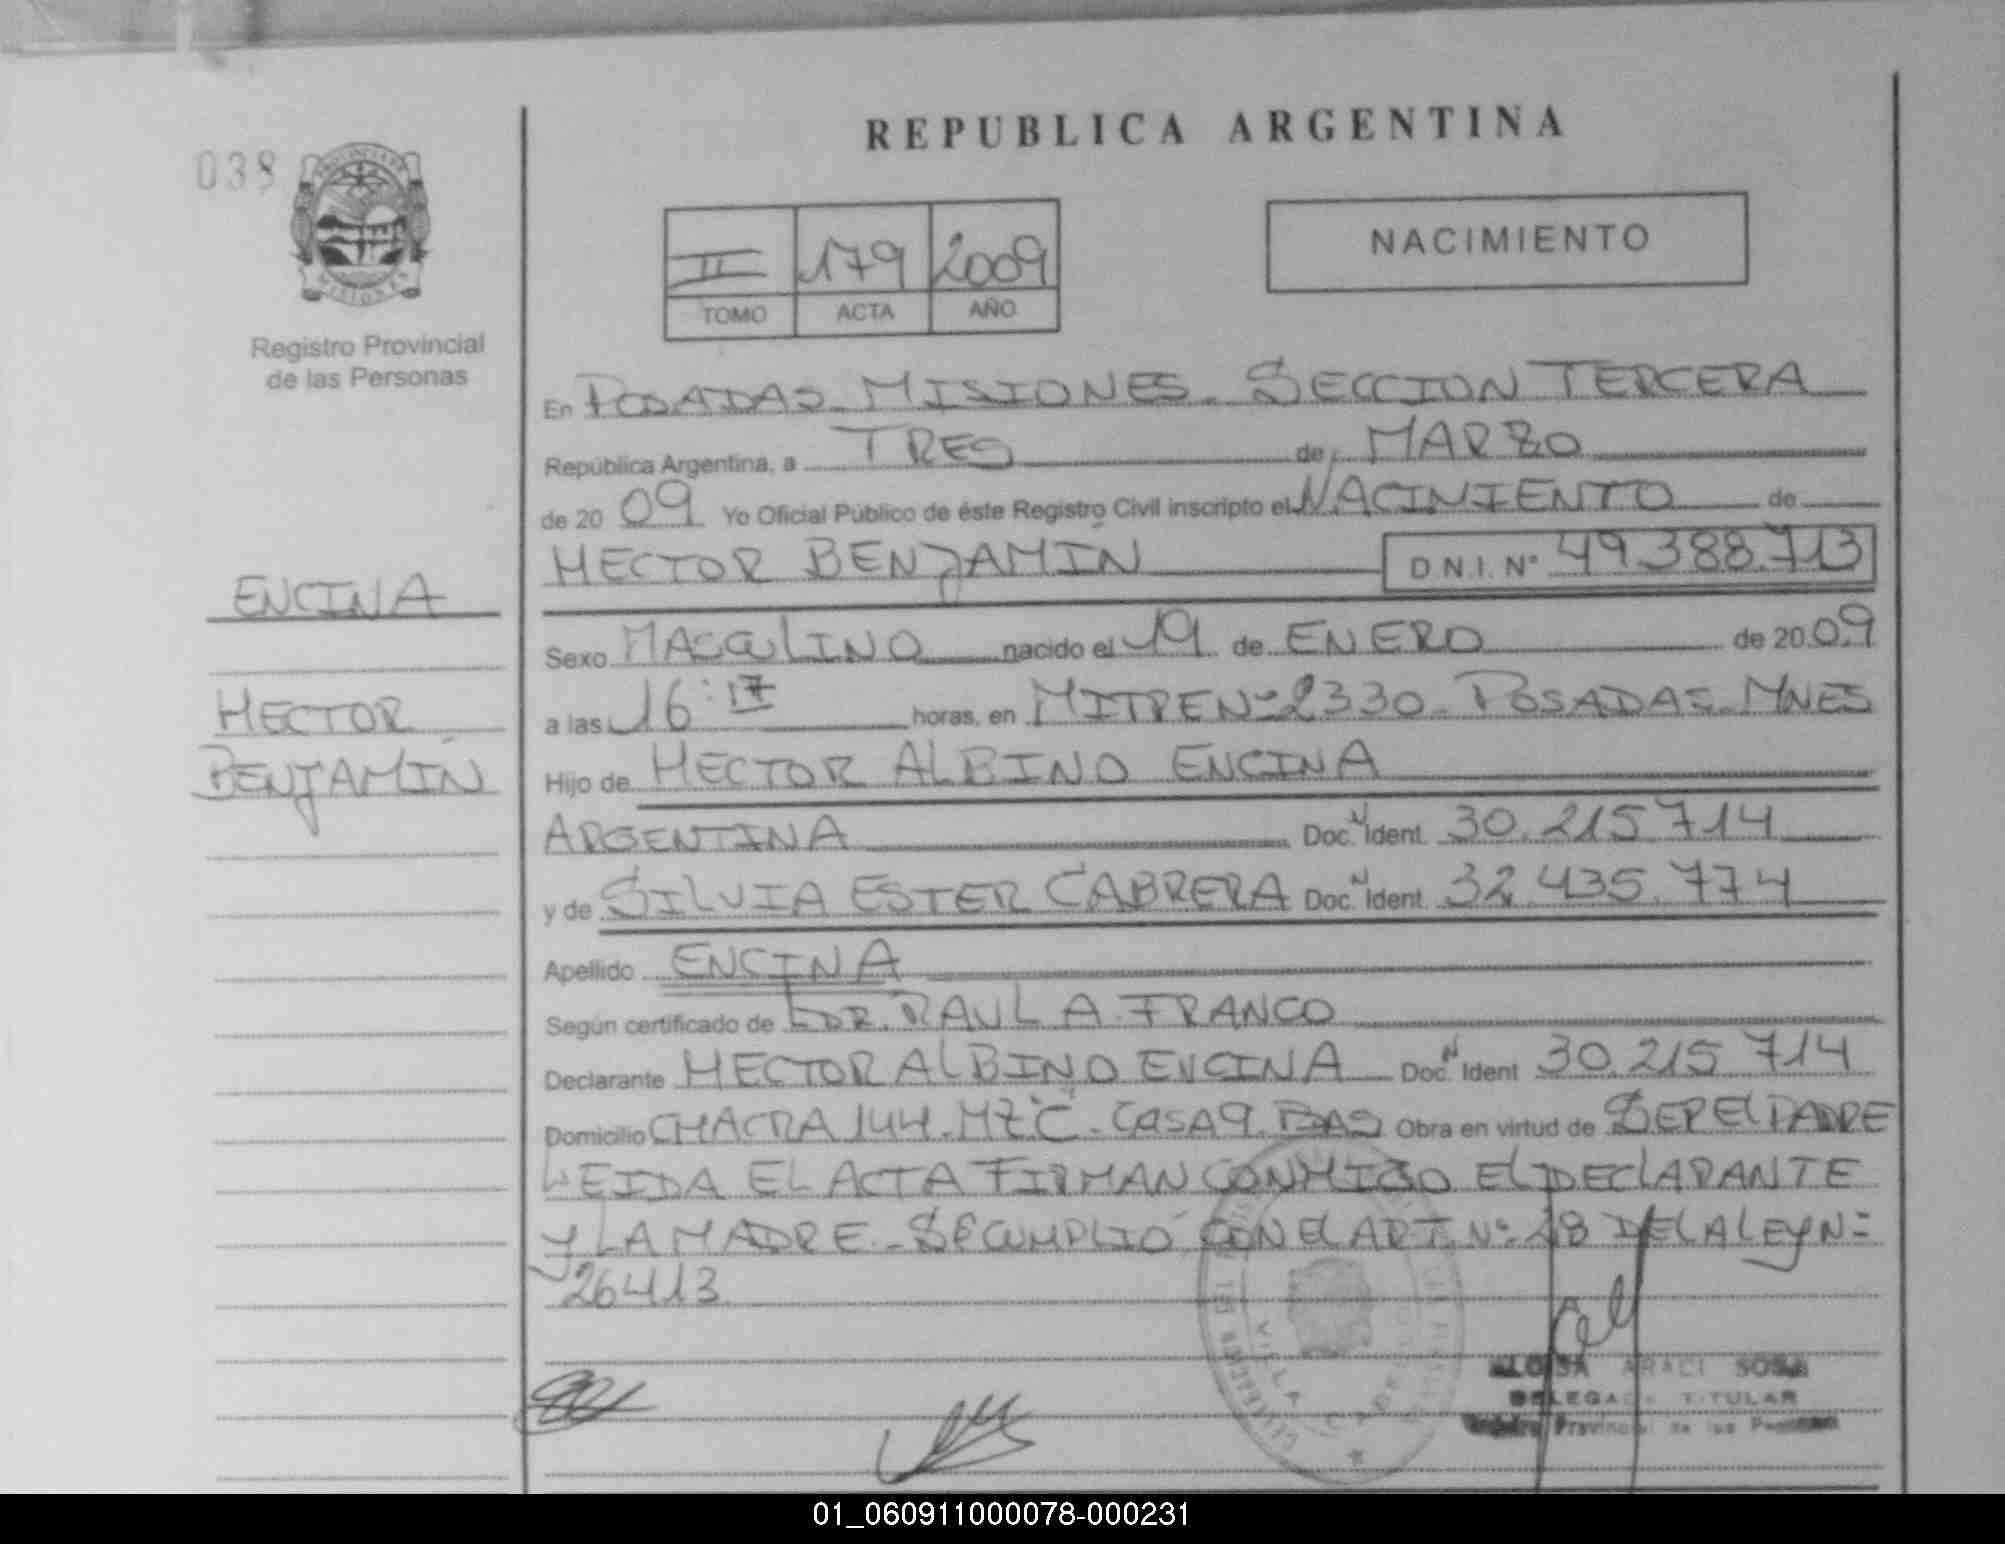 REPUBLICA ARGENTINA
038
PROVINCIA DE
MISIONES
Registro Provincial
de las Personas
II 179 2009
TOMO ACTA AÑO
NACIMIENTO
En POSADAS - MISIONES - SECCION TERCERA
República Argentina, a TRES de MARZO
de 20 09 Yo Oficial Público de éste Registro Civil inscripto el NACIMIENTO de
HECTOR BENJAMÍN D.N.I. Nº 49.388.713
ENCINA
HECTOR
BENJAMÍN
Sexo MASCULINO nacido el 19 de ENERO de 20 09
a las 16:17 horas, en MITRE Nº 2330 - POSADAS - MNES
Hijo de HECTOR ALBINO ENCINA
ARGENTINA Doc. N Ident. 30.215.714
y de SILVIA ESTER CABRERA Doc. N Ident. 32.435.774
Apellido ENCINA
Según certificado de DR. RAUL A. FRANCO
Declarante HECTOR ALBINO ENCINA Doc. N Ident 30.215.714
Domicilio CHACRA 144 - MZ "C" - CASA 9 - PDAS Obra en virtud de SER EL PADRE
LEIDA EL ACTA FIRMAN CONMIGO EL DECLARANTE
Y LA MADRE - SE CUMPLIO CON EL ART. Nº 28 DE LA LEY Nº
26413
ARACI SOSA
DELEGADA TITULAR
Registro Provincial de las Personas
VILLA CABELLO
01_060911000078-000231